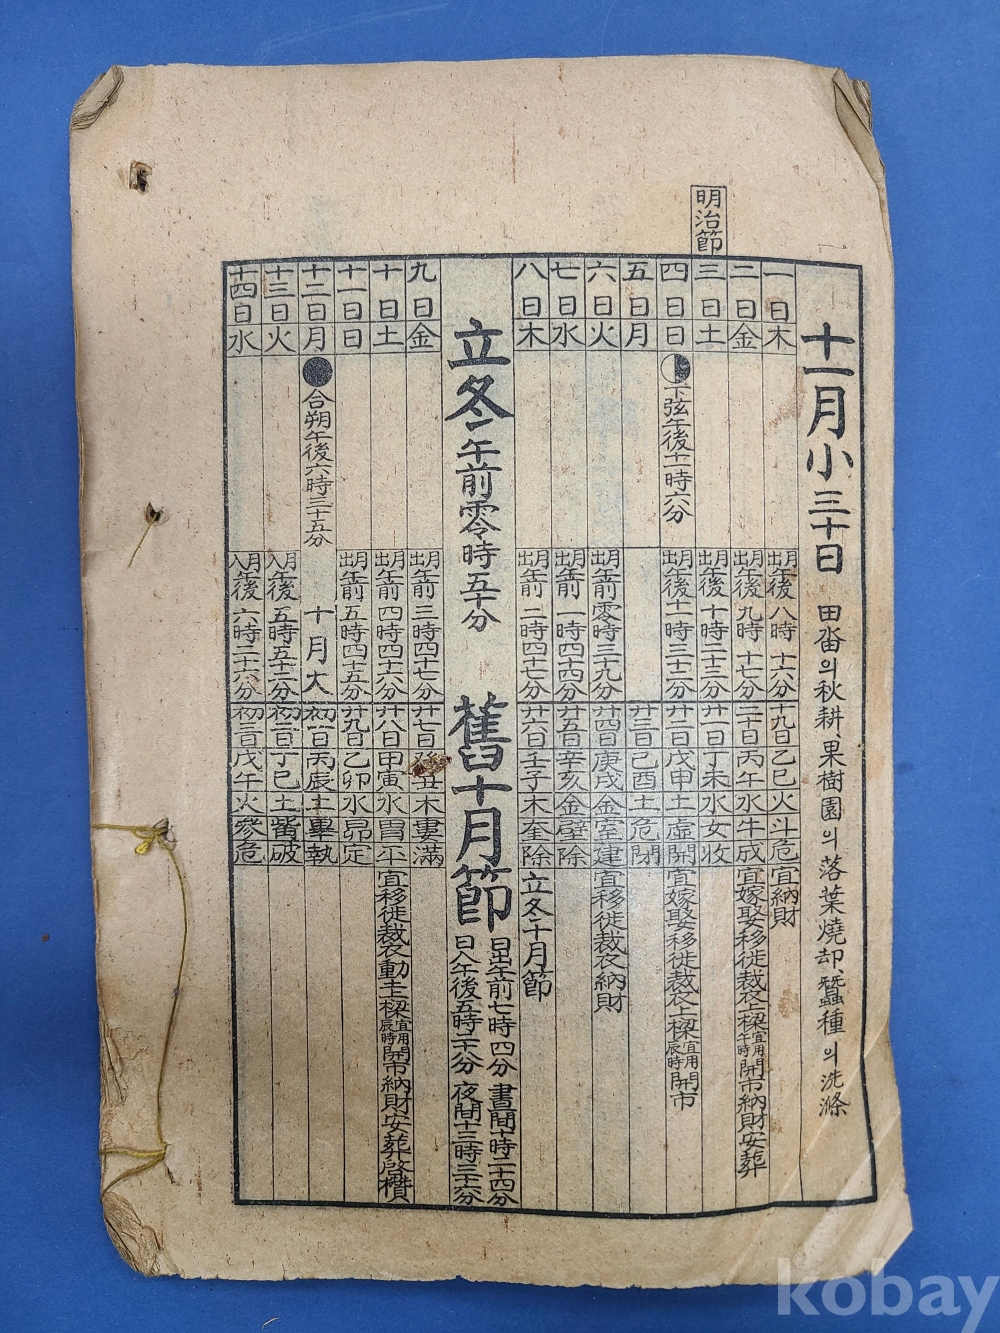 明治節
十一月小三十日 田畓의秋耕、果樹園의落葉燒却、蠶種의洗滌
一日木 出月午後八時十六分 十九日乙巳火斗危 宜納財
二日金 出月午後九時十七分 二十日丙午水牛成 宜嫁娶移徙裁衣上樑宜用午時開市納財安葬
三日土 月午後十時二十三分 廿一日丁未水女收
四日日 下弦午後十一時六分 出月午後十一時三十二分 廿二日戊申土虛開 宜嫁娶移徙裁衣上樑宜用辰時開市
五日月 廿三日己酉土危閉
六日火 出月午前零時三十九分 廿四日庚戌金室建 宜移徙裁衣納財
七日水 出月午前一時四十四分 廿五日辛亥金壁除
八日木 出月午前二時四十七分 廿六日壬子木奎除 立冬十月節
立冬午前零時五十分 舊十月節 日出午前七時四分 晝間十時二十四分
日入午後五時二十八分 夜間十三時三十六分
九日金 出月午前三時四十七分 廿七日丑木婁滿
十日土 出月午前四時四十六分 廿八日甲寅水胃平 宜移徙裁衣動土上樑宜用辰時開市納財安葬啓攢
十一日日 出月午前五時四十五分 廿九日乙卯水昴定
十二日月 合朔午後六時三十五分 十月大 初一日丙辰土畢執
十三日火 入月午後五時五十二分 初二日丁巳土觜破
十四日水 入月午後六時二十六分 初三日戊午火參危
kobay